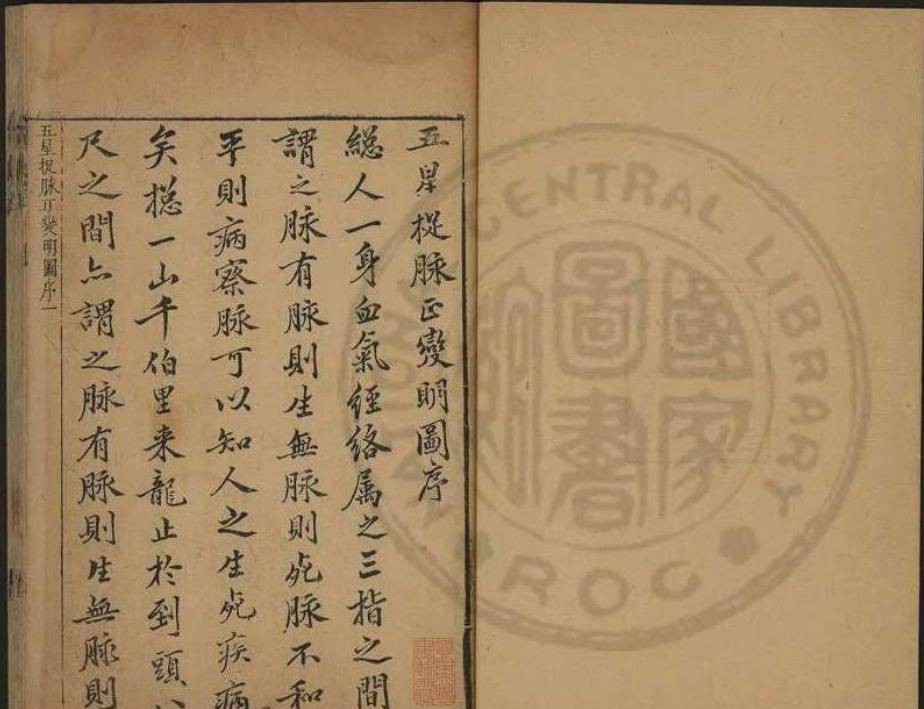 CENTRAL LIBRARY
ROC
國家
圖書
五星捉脉正變明圖序
緫人一身血氣經絡属之三指之間
謂之脉有脉則生無脉則死脉不和
平則病察脉可以知人之生死疾病
矣揔一山千伯里来龍止於到頭八
尺之間亦謂之脉有脉則生無脉則
五星捉脉正變明圖序一